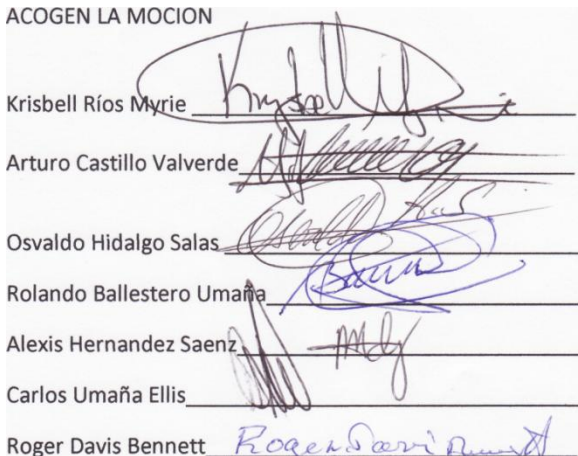 ACOGEN LA MOCION
Krisbell Ríos Myrie
Arturo Castillo Valverde
Osvaldo Hidalgo Salas Osvaldo
Rolando Ballestero Umaña
Alexis Hernandez Saenz
Carlos Umaña Ellis
Roger Davis Bennett Roger Davis Bennett